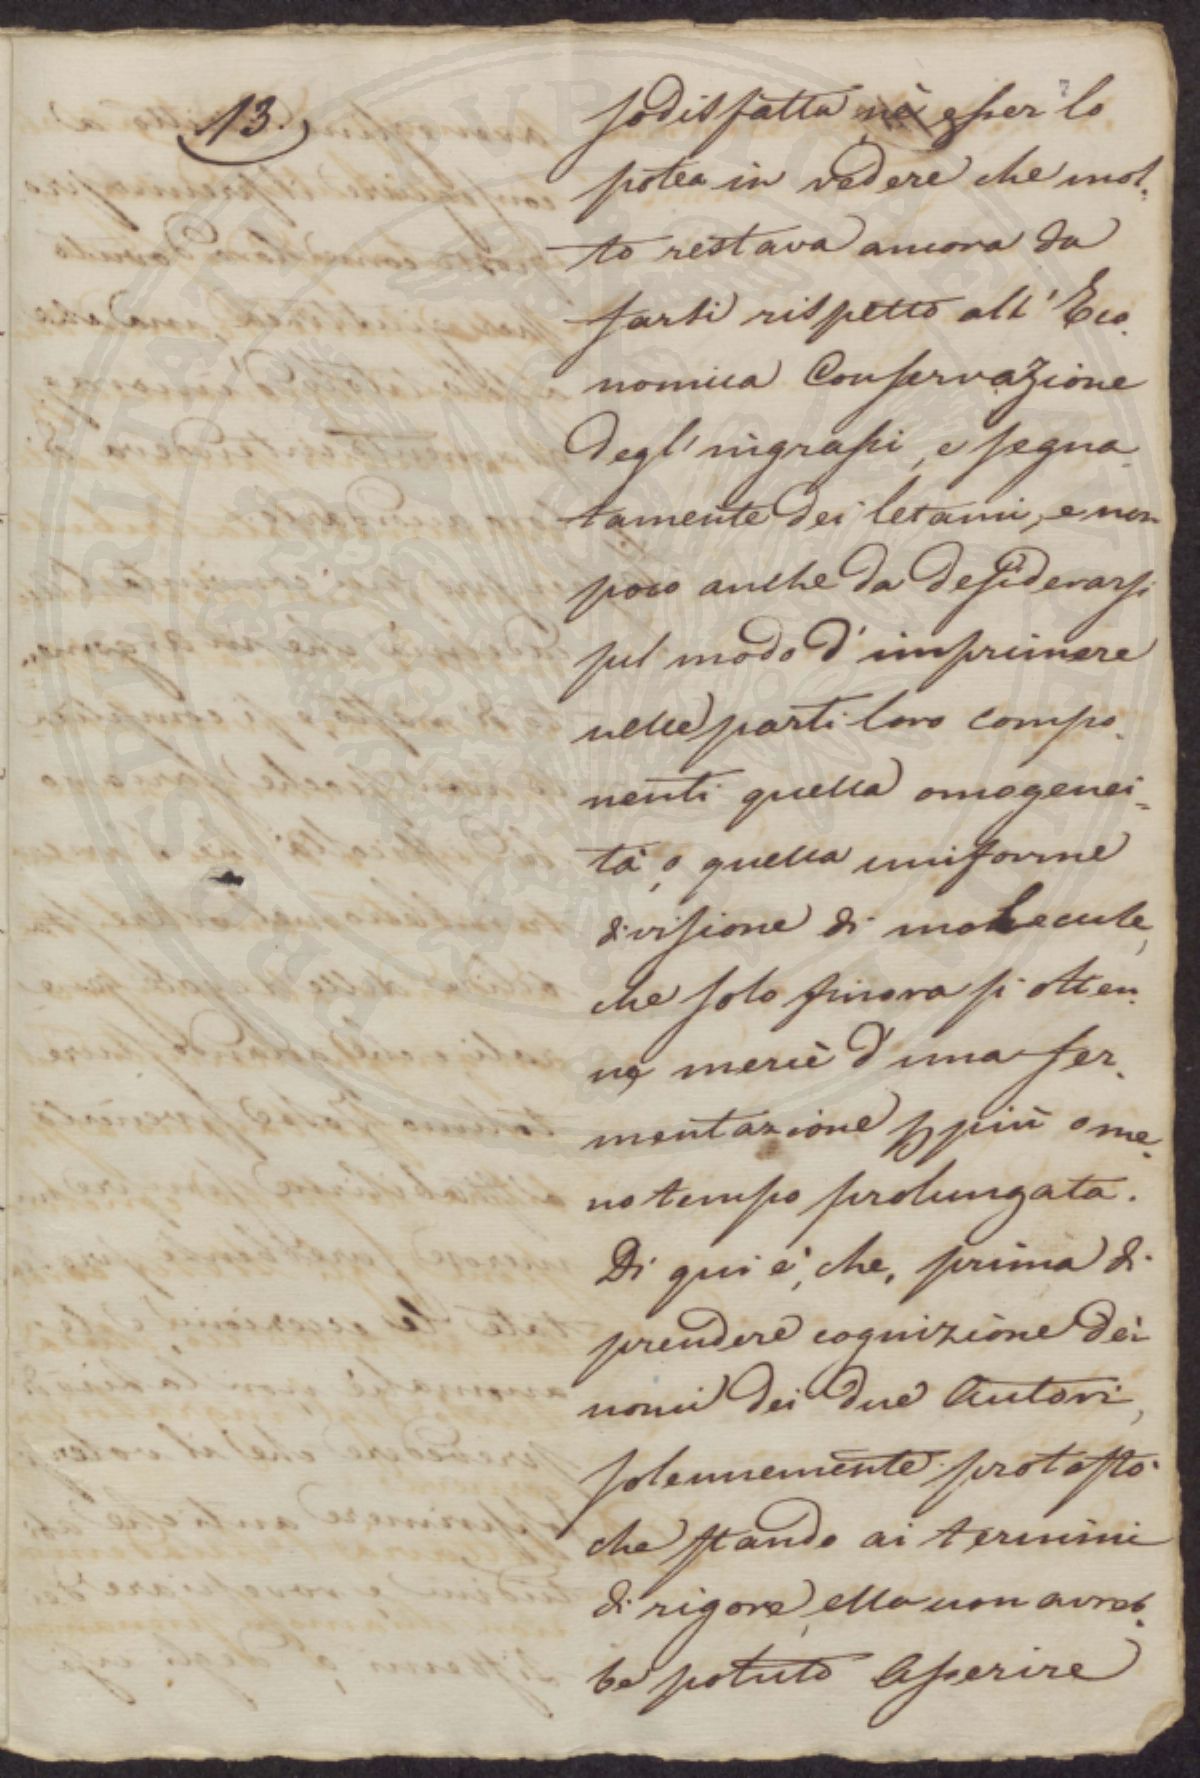 13.
7
sodisfatta nè esser lo
potea in vedere che mol-
to restava ancora da
farsi rispetto all'Eco-
nomica Conservazione
degl'ingrassi, e segna-
tamente dei letami, e non
poco anche da desiderarsi
sul modo d'imprimere
nelle parti loro compo-
nenti quella omogenei-
tà, o quella uniforme
divisione di molecule,
che solo finora si otten-
ne mercè d'una fer-
mentazione p più o me-
no tempo prolungata.
Di qui è, che, prima di
prendere cognizione dei
nomi dei due Autori,
solennemente protestò
che stando ai termini
di rigore, ella non avreb-
be potuto asserire